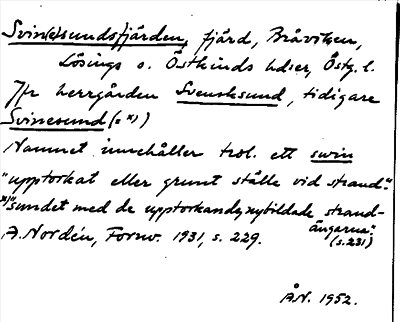 Svin(e)sundsfjärden, fjärd, Bråviken,
Lösings o. Östkinds hdser, Östg. l.
Jfr herrgården Svensksund, tidigare
Svinesund (= x))
Namnet innehåller trol. ett swin
"upptorkat eller grunt ställe vid strand".
x) "sundet med de upptorkande, nybildade strand-
ängarna".
A. Nordén, Fornv. 1931, s. 229. (s. 231)
ÅN. 1952.